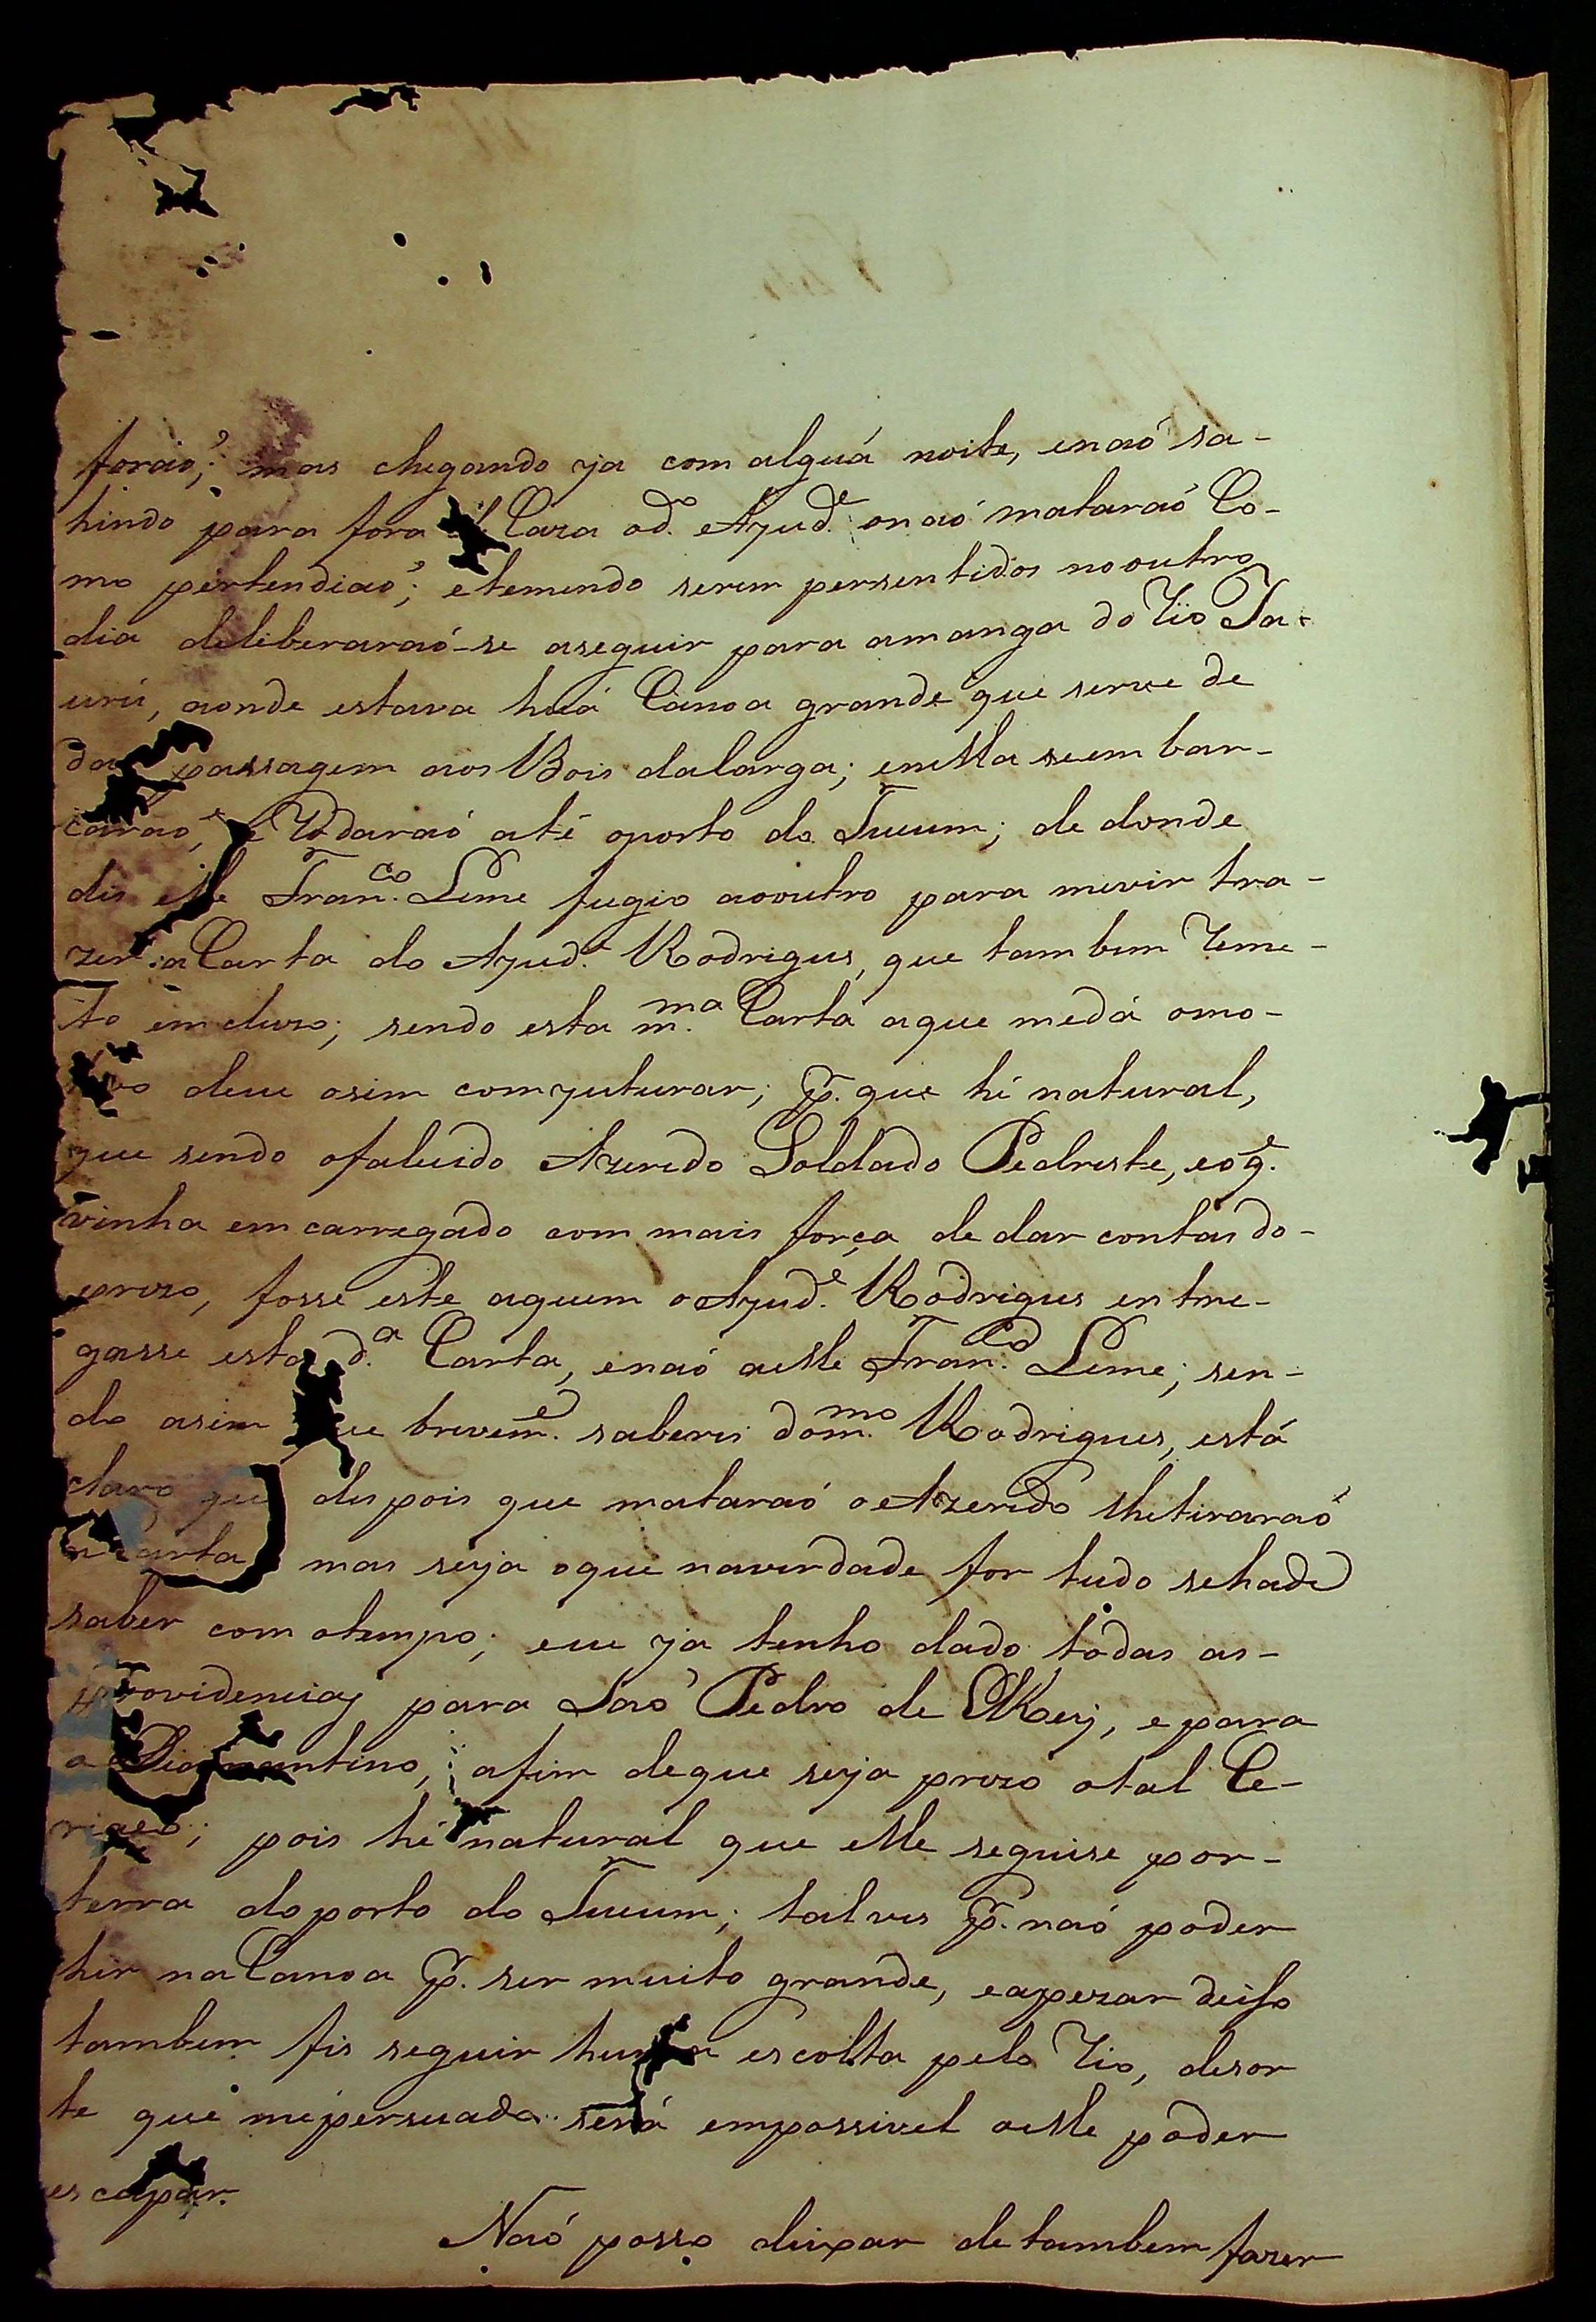 foraõ; mas chegando ja com alguá noite, enaõ sa-
hindo para fora Caza od.º Ajud.e onaõ mataraõ Co-
mo pertendiaõ; etemendo serem persentidos nooutro
dia deliberaraõ-se aseguir para amanga do Rio Ja-
urú, aonde estava huá Canoa grande que serve de
dar passagem aos Bois dalarga; enella seembar-
caraõ, e Rodaraõ até oporto do Tucum; de donde
dis elle Fran.co Leme fugio aooutro para mevir tra-
zer aCarta do Ajud.e Rodrigues, que tambem Reme-
to emcluzo; sendo esta m.ma Carta aque medá omo-
deeu asim comjuturar; p. que hé natural,
que sendo ofalecido Azeredo Soldado Pedreste, eoq.e
vinha emcarregado com mais força de dar contas do-
prezo, fosse este aquem oAjud.e Rodrigues entre-
gasse esta d.a Carta, enaõ aelle Fran.co Leme; sen-
do asim que brevem.e saberei dom.mo Rodrigues, está
claro que depois que mataraõ oAzeredo lhetiraraõ
a Carta mas seja oque naverdade for tudo sehade
saber com otempo; eeu ja tenho dado todas as-
providencias para Saõ Pedro de ElRey, e para
o Diamantino, afim deque seja prezo otal Ce-
; pois hé natural que elle seguise por-
terra doporto do Tucum; talves p. naõ poder
hir naCanoa p. ser muito grande, eapezar disso
tambem fis seguir huma escolta pelo Rio, desor
te que mepersuado será empossivel aelle poder
escapar.
Naõ posso deixar detambem fazer